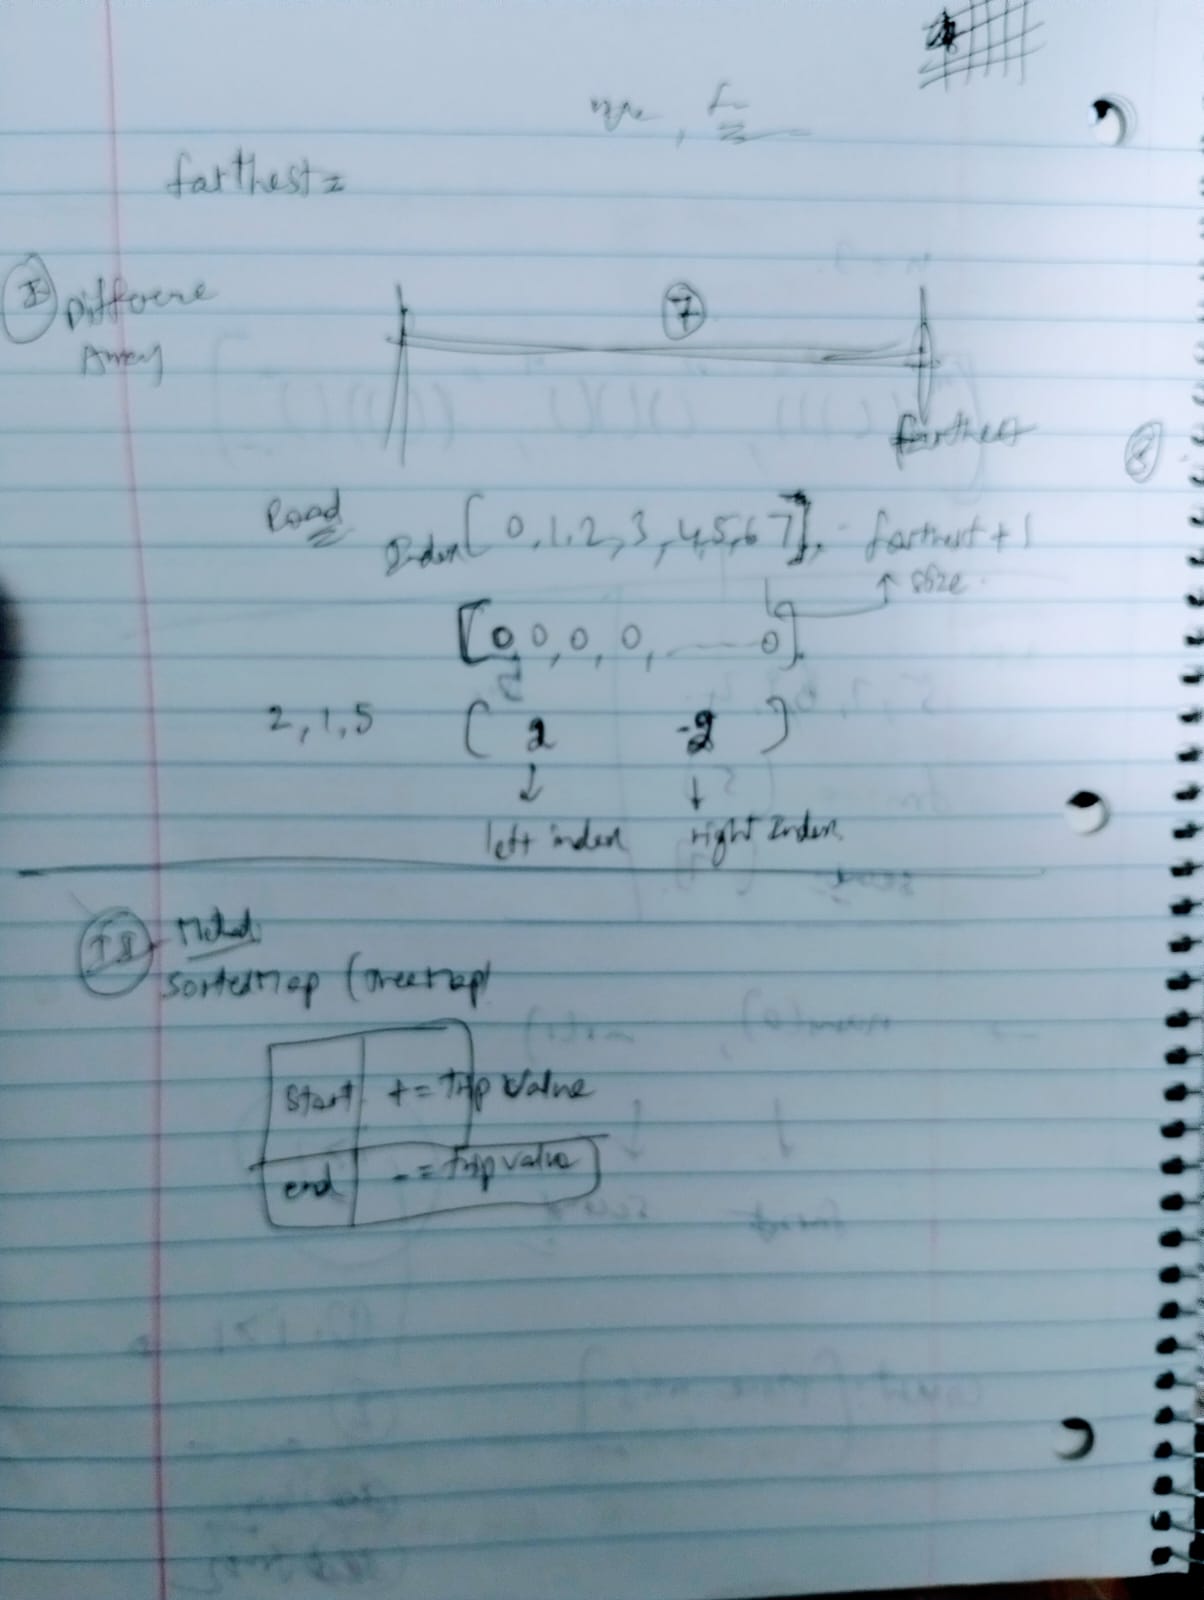 farthest =
I Differene
Array
7
farthest
8
Road
Index [ 0,1,2,3,4,5,6 7], - farthest + 1
↑ size.
[0 0,0,0, ——— 0].
2,1,5 ( 2 -2 )
↓ ↓
left index right Index.
II Method:
SortedMap (TreeMap)
Start += Trip Value
end -= Trip value